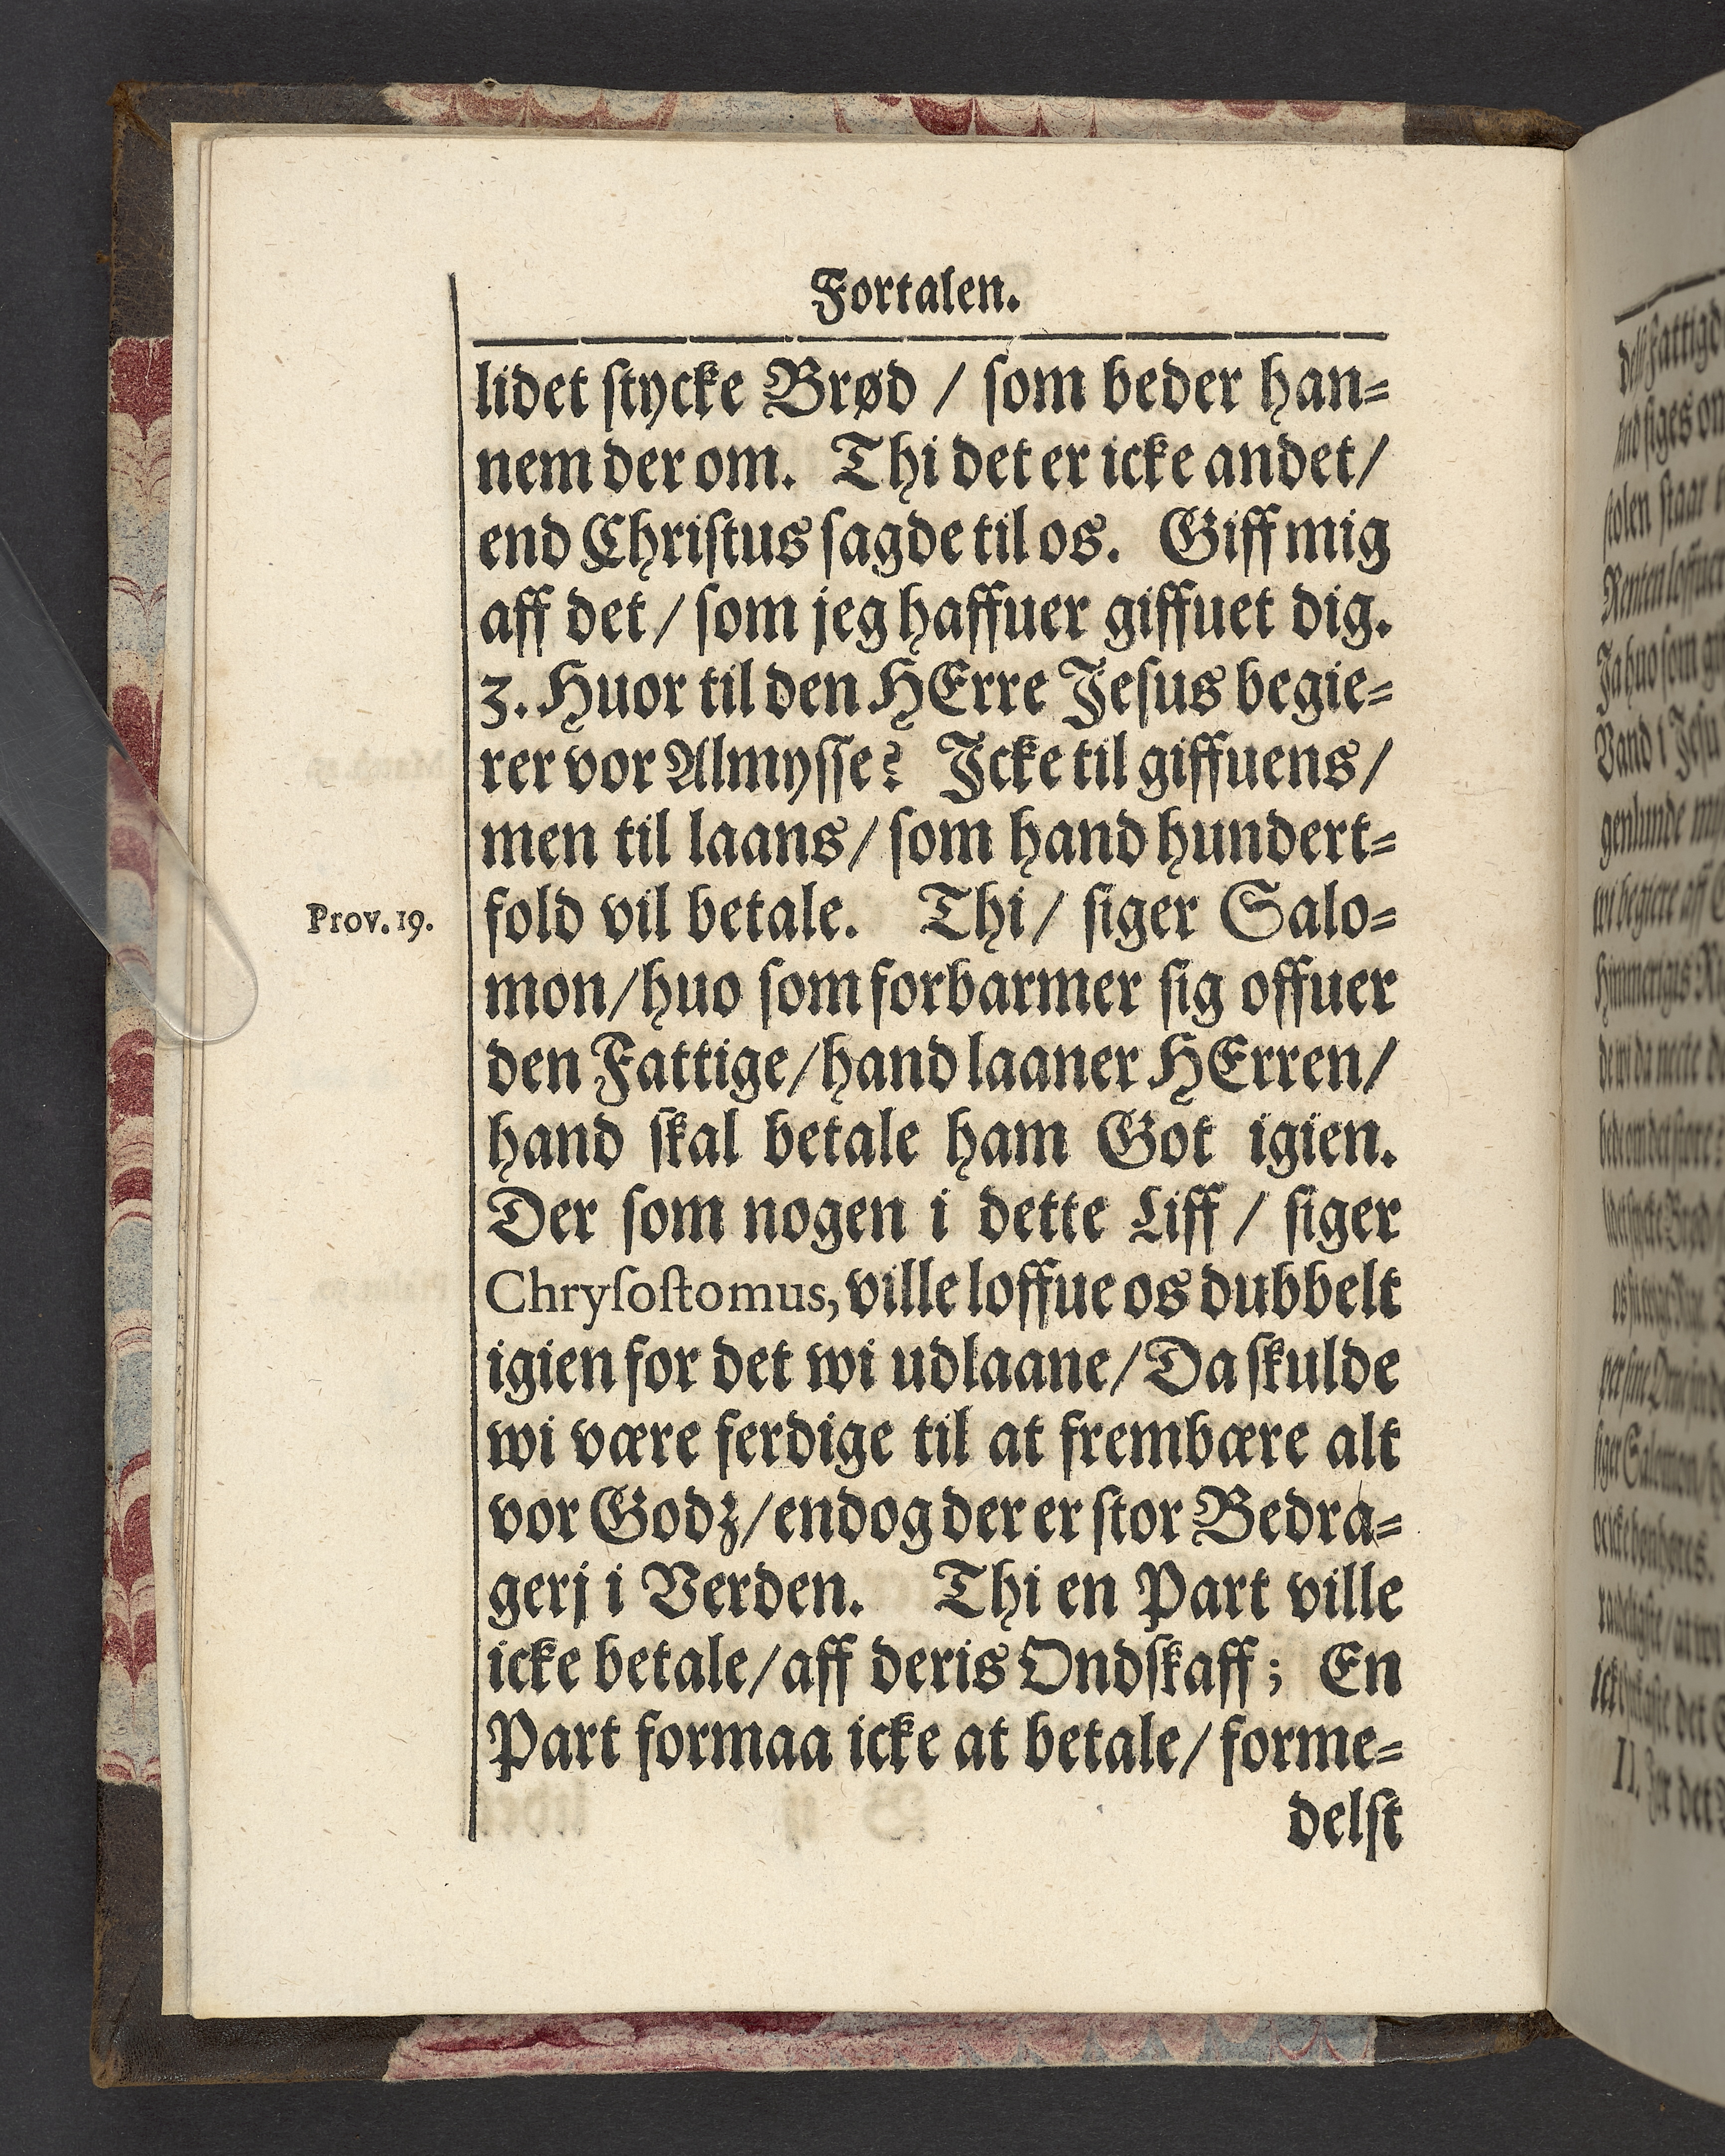 Fortalen.
lidet ſtycke Brød / ſom beder han=
nem der om. Thi det er icke andet/
end Chriſtus ſagde til os. Giff mig
aff det/ ſom jeg haffuer giffuet dig.
3. Huor til den HErre Jeſus begie=
rer vor Almyſſe? Icke til giffuens/
men til laans/ ſom hand hundert=
Prov. 19.
fold vil betale. Thi/ ſiger Salo=
mon/ huo ſom forbarmer ſig offuer
den Fattige/ hand laaner HErren/
hand ſkal betale ham Got igien.
Der ſom nogen i dette Liff / ſiger
Chryſoſtomus, ville loffue os dubbelt
igien for det wi udlaane/ Da ſkulde
wi være ferdige til at frembære alt
vor Godz/ endog der er ſtor Bedra=
gerj i Verden. Thi en Part ville
icke betale/ aff deris Ondſkaff; En
Part formaa icke at betale/ forme=
delſt